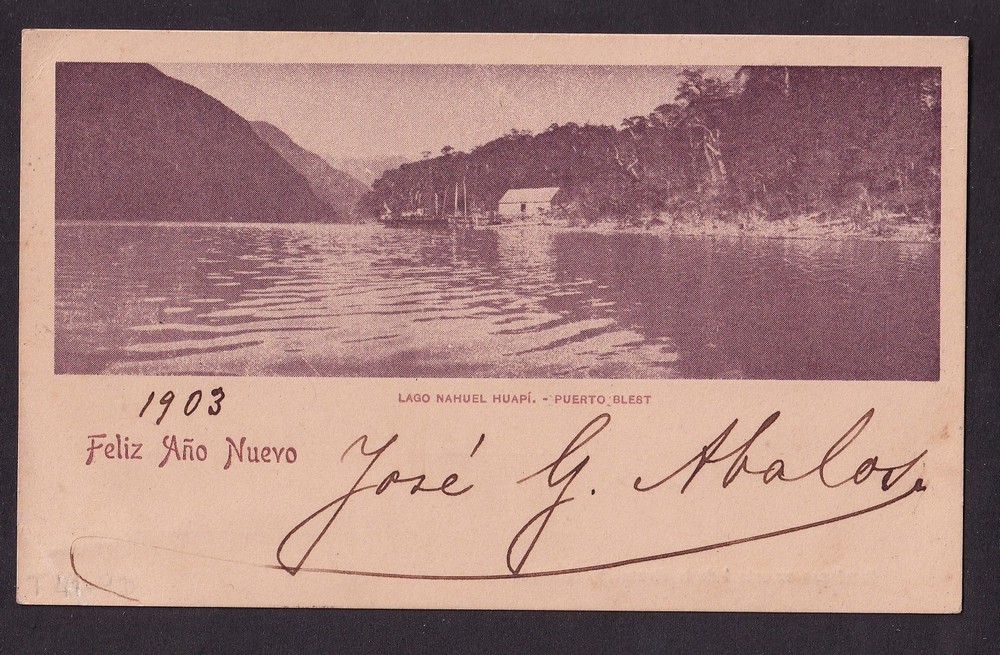 LAGO NAHUEL HUAPÍ. - PUERTO BLEST
1903
Feliz Año Nuevo
José G. Abalos